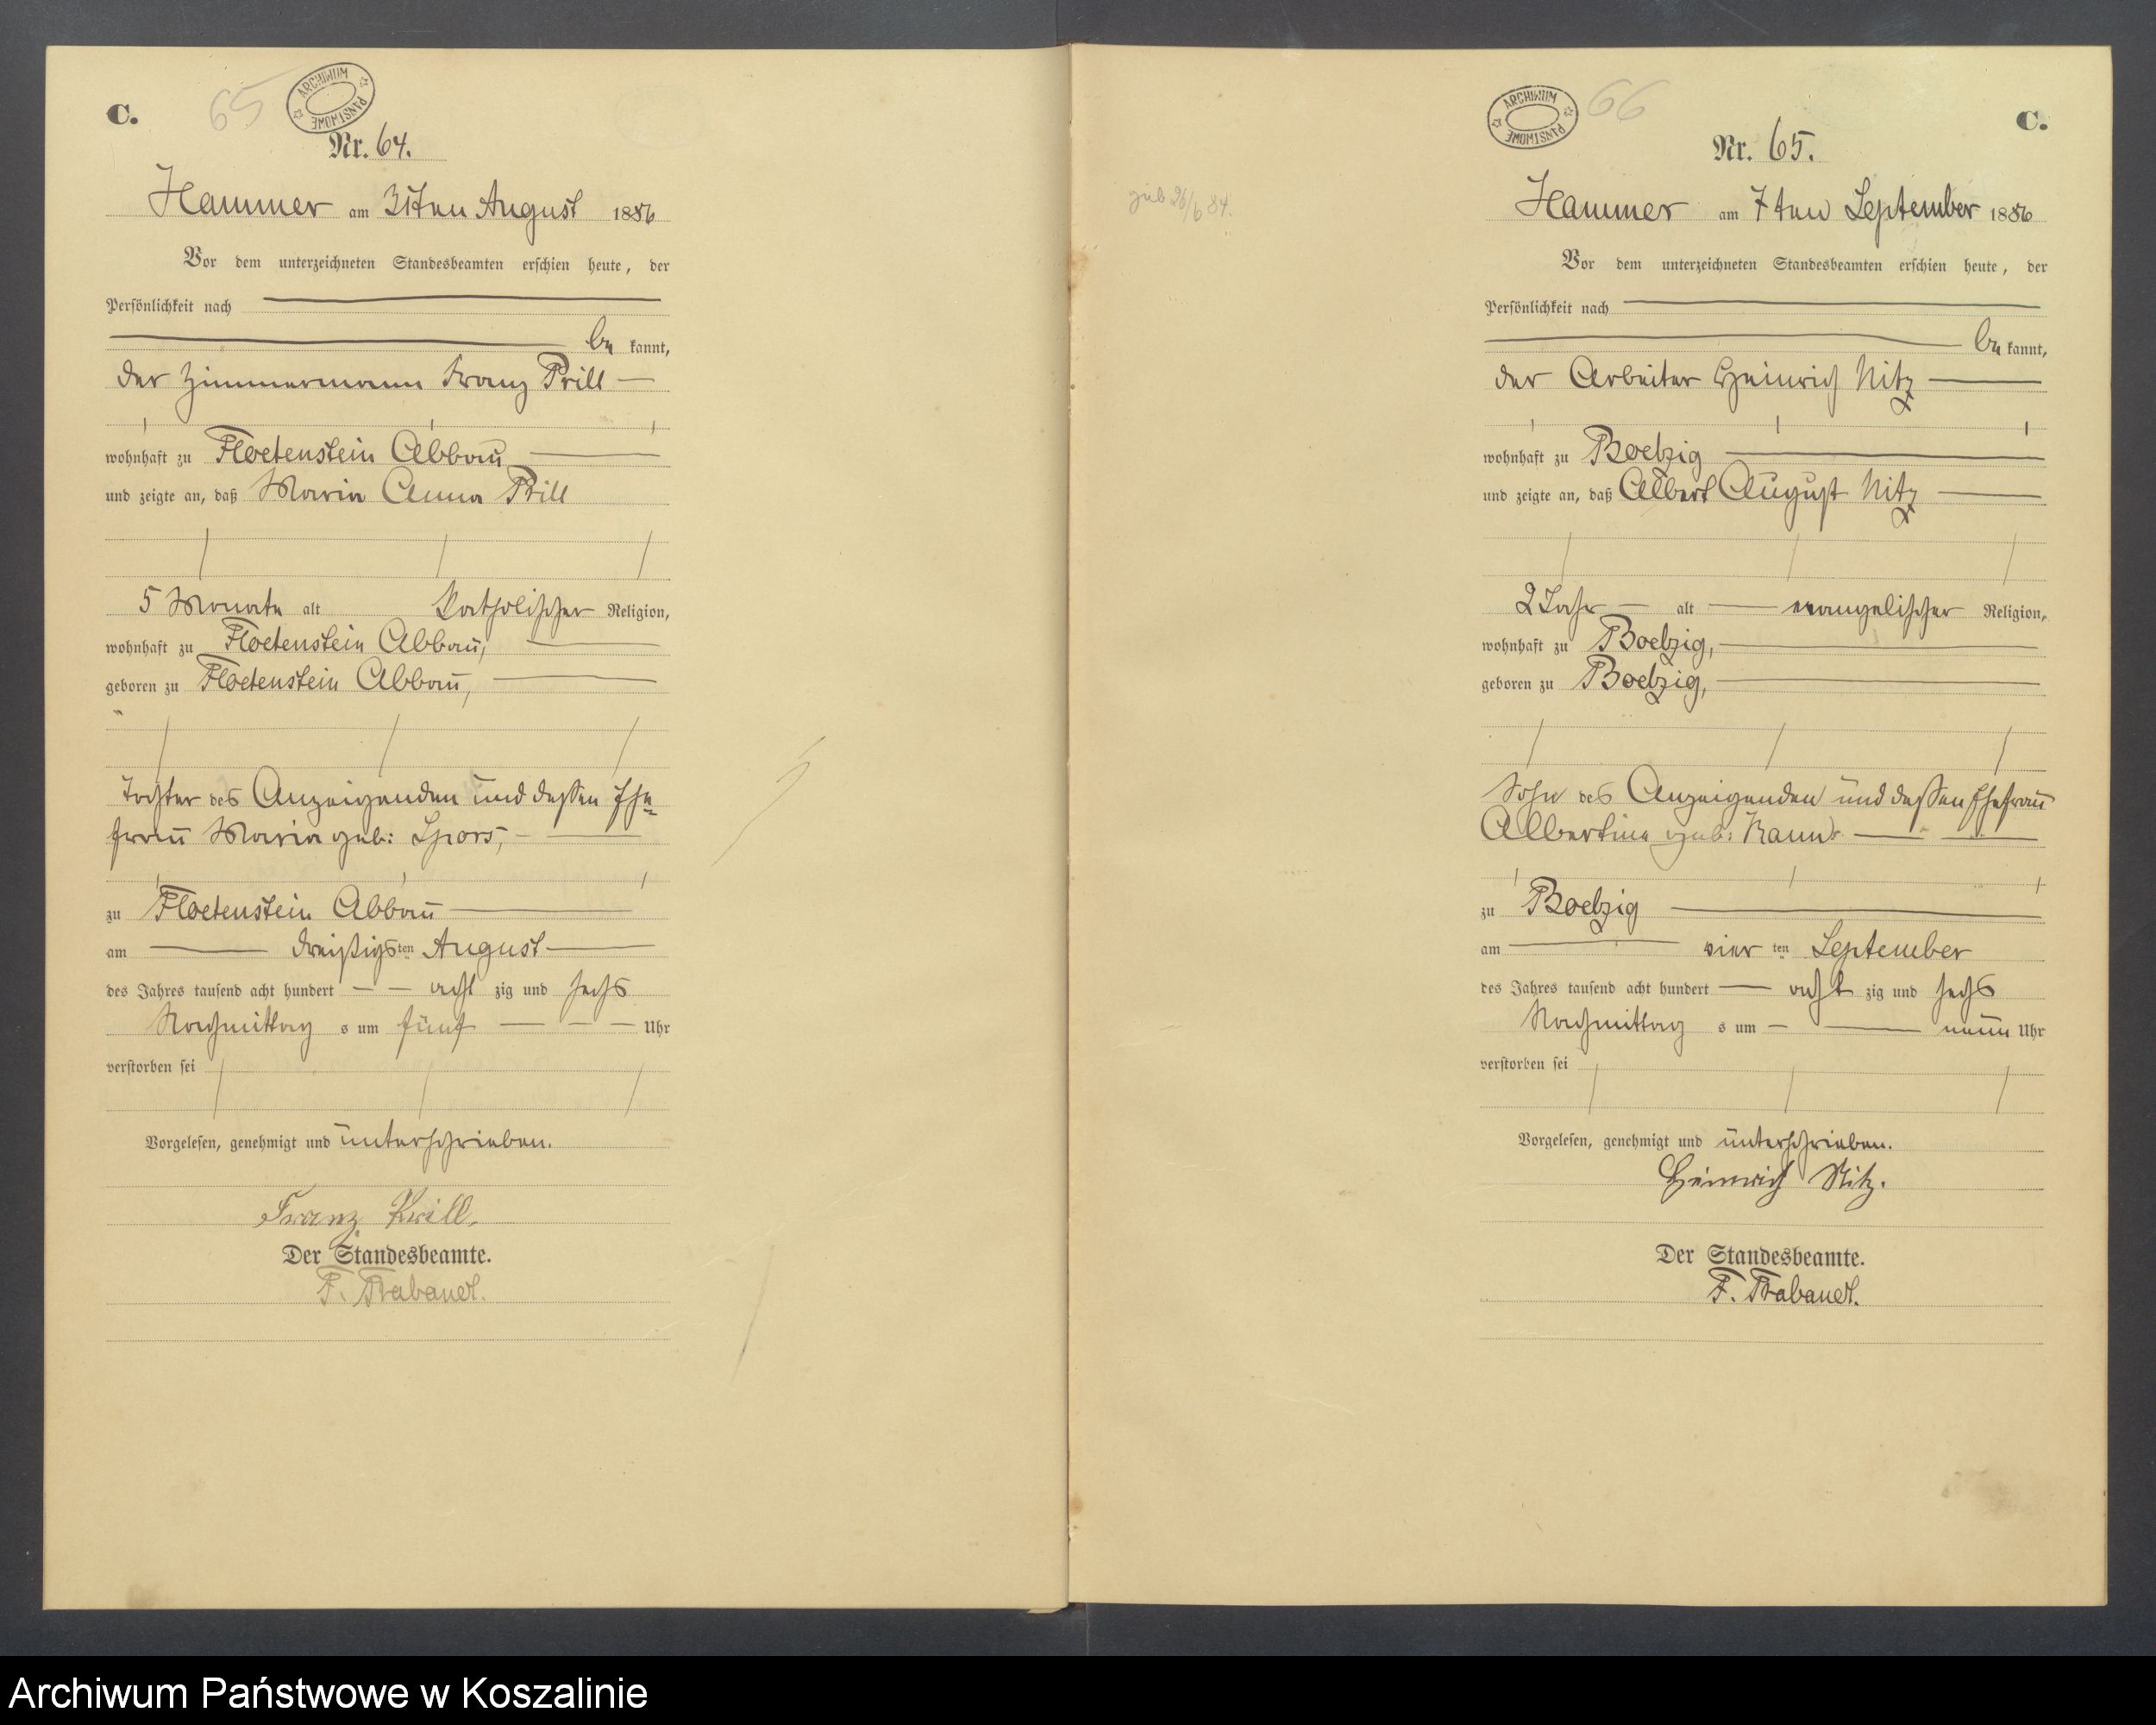 C.
65
ARCHIWUM PAŃSTWOWE
Nr. 64.
Hammer am 31ten August 1886
Vor dem unterzeichneten Standesbeamten erschien heute, der
Persönlichkeit nach
be kannt,
der Zimmermann Franz Prill
wohnhaft zu Floetenstein Abbau
und zeigte an, daß Maria Anna Prill
5 Monate alt Katholischer Religion,
wohnhaft zu Floetenstein Abbau,
geboren zu Floetenstein Abbau,
Tochter des Anzeigenden und dessen Ehe
frau Maria geb: Spors,
zu Floetenstein Abbau
am dreißigsten August
des Jahres tausend acht hundert acht zig und sechs
Nachmittag s um fünf Uhr
verstorben sei
Vorgelesen, genehmigt und unterschrieben.
Franz Prill.
Der Standesbeamte.
F. Trabandt.
C.
66
ARCHIWUM PAŃSTWOWE
Nr. 65.
geb 26/6 84.
Hammer am 7ten September 1886
Vor dem unterzeichneten Standesbeamten erschien heute, der
Persönlichkeit nach
be kannt,
der Arbeiter Heinrich Nitz
wohnhaft zu Boelzig
und zeigte an, daß Albert August Nitz
2 Jahr alt evangelischer Religion,
wohnhaft zu Boelzig,
geboren zu Boelzig,
Sohn des Anzeigenden und dessen Ehefrau
Albertine geb:
zu Boelzig
am vier ten September
des Jahres tausend acht hundert acht zig und sechs
Nachmittag s um neun Uhr
verstorben sei
Vorgelesen, genehmigt und unterschrieben.
Heinrich Nitz.
Der Standesbeamte.
F. Trabandt.
Archiwum Państwowe w Koszalinie